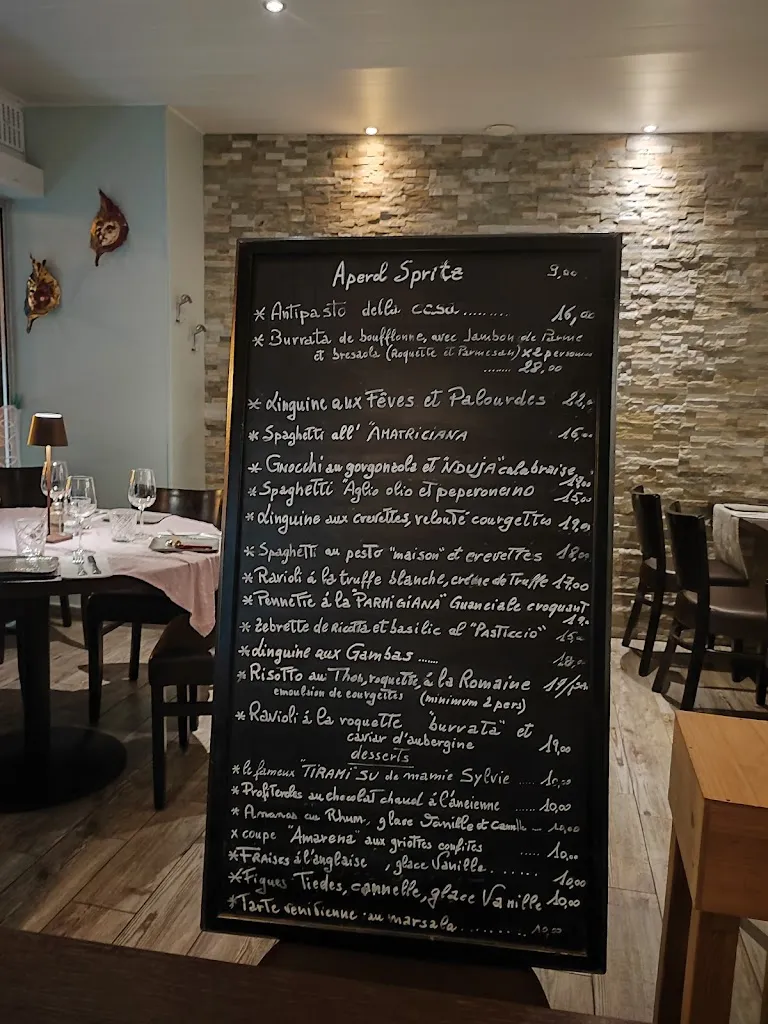 Aperol Spritz 9,00
* Antipasto della casa......... 16,00
* Burrata de boufflonne, avec Jambon de Parme
et bresaola (Roquette et Parmesan) x 2 personnes
....... 28,00
* Linguine aux Fêves et Palourdes 22,00
* Spaghetti all' "AMATRICIANA 16,00
* Gnocchi au gorgonzola et "NDUJA" calabraise
* Spaghetti "Aglio olio et peperoncino 15,00
* Linguine aux crevettes, velouté courgettes 19,00
* Spaghetti au pesto "maison" et crevettes 18,00
* Ravioli à la truffe blanche, crème de Truffe 17,00
* Pennette à la "PARMIGIANA" Guanciale croquant
* Zebrette de Ricotta et basilic al "PASTICCIO" 15,00
* Linguine aux Gambas .......
* Risotto au Thon, roquette, à la Romaine
emulsion de courgettes (minimum 2 pers)
* Ravioli à la roquette "burrata" et
caviar d'aubergine 19,00
desserts
* le fameux "TIRAMI" SU de mamie Sylvie ..... 10,00
* Profiteroles au chocolat chaud à l'ancienne ...... 10,00
* Ananas au Rhum, glace Vanille et 10,00
x coupe "Amarena" aux griottes confites ..... 10,00
* FRaises à l'anglaise , glace Vanille....... 10,00
* Figues Tiedes, cannelle, glace Vanille 10,00
* Tarte venitienne au marsala......... 10,00